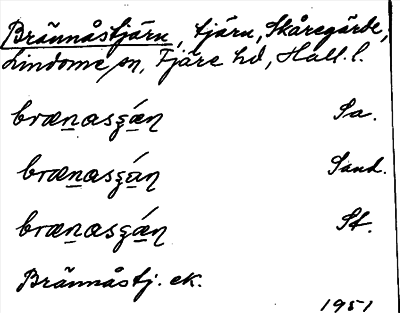 Brännåstjärn, tjärn, Skåregärde,
Lindome sn, Fjäre hd, Hall. l.
brænasgǻn Sa.
brænasgán Sand.
brænasgǽn St.
Brännåstj. ek.
1951